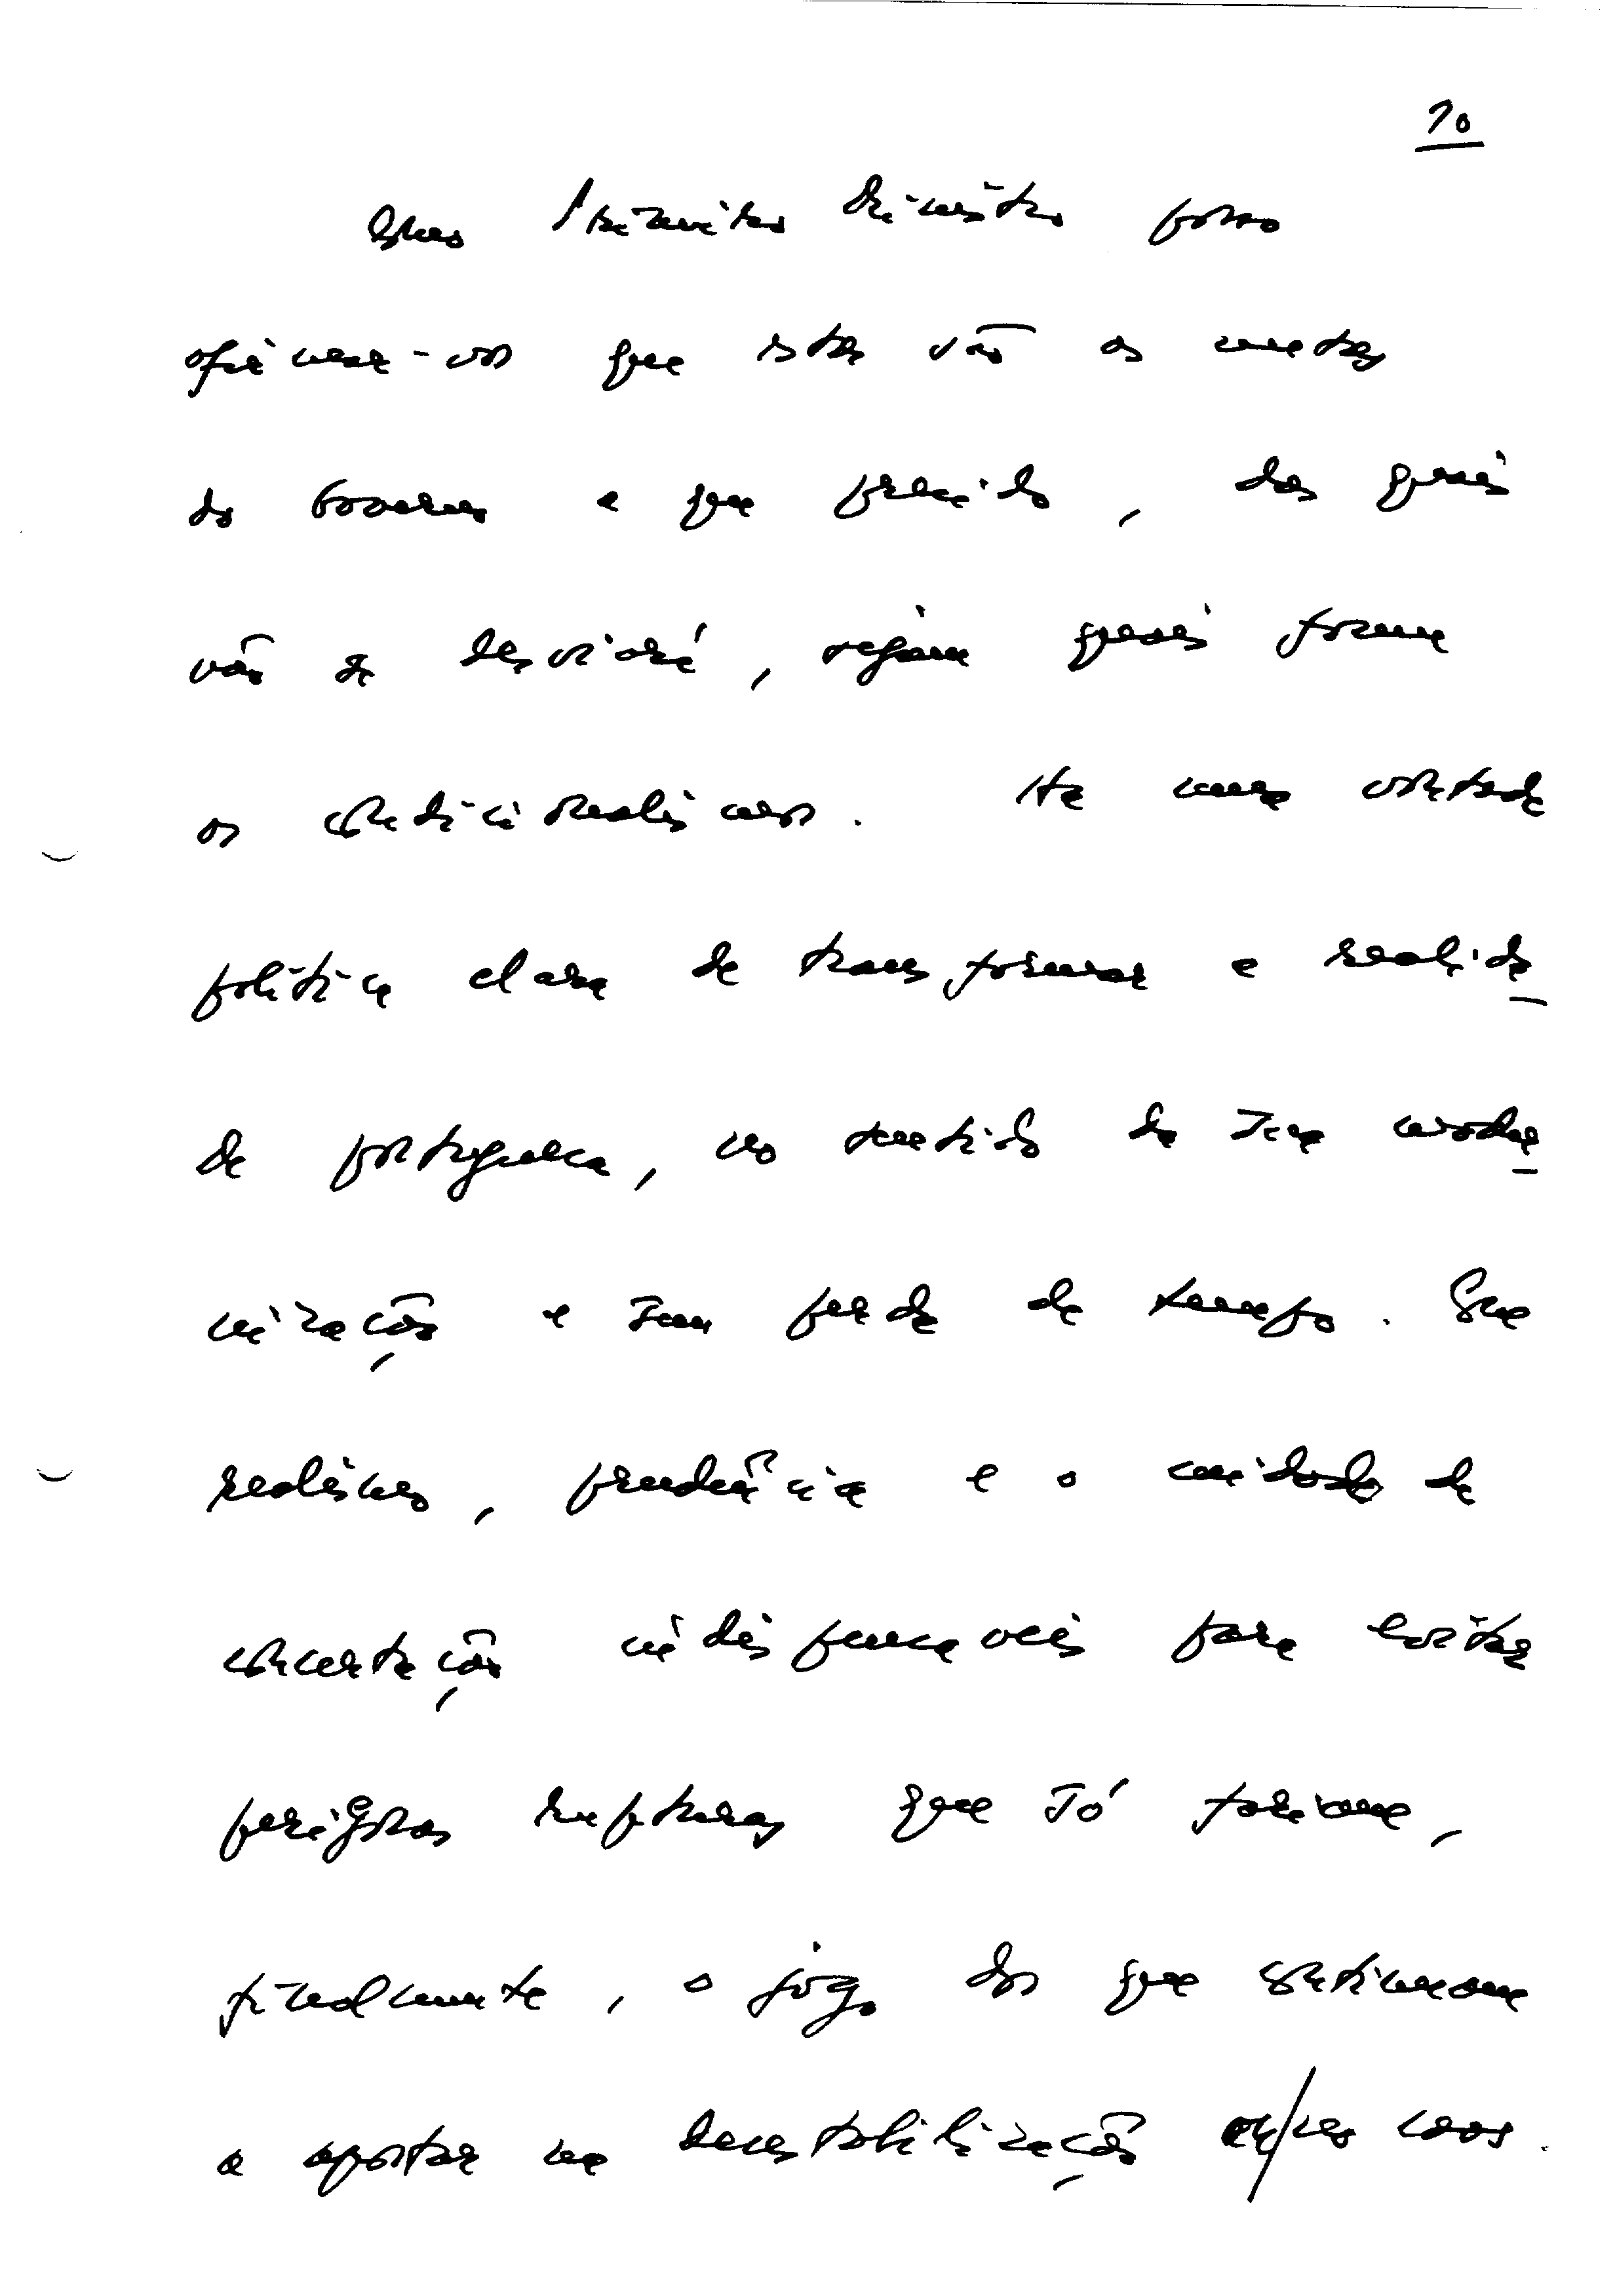 10
Como Primeiro Ministro posso
afirmar-vos que estas são as metas
do Governo a que presido, das quais
não se desviará, sejam quais forem
os condicionalismos. Há uma vontade
política clara de transformar a realida_
de portuguesa, no sentido da sua moder_
nização e sem perda de tempo. Com
realismo, prudência e o cuidado de
concertação indispensáveis para evitar
perigosas rupturas que só fariam,
finalmente, o jogo dos que continuam
a apostar na desestabilização e/ no caos.